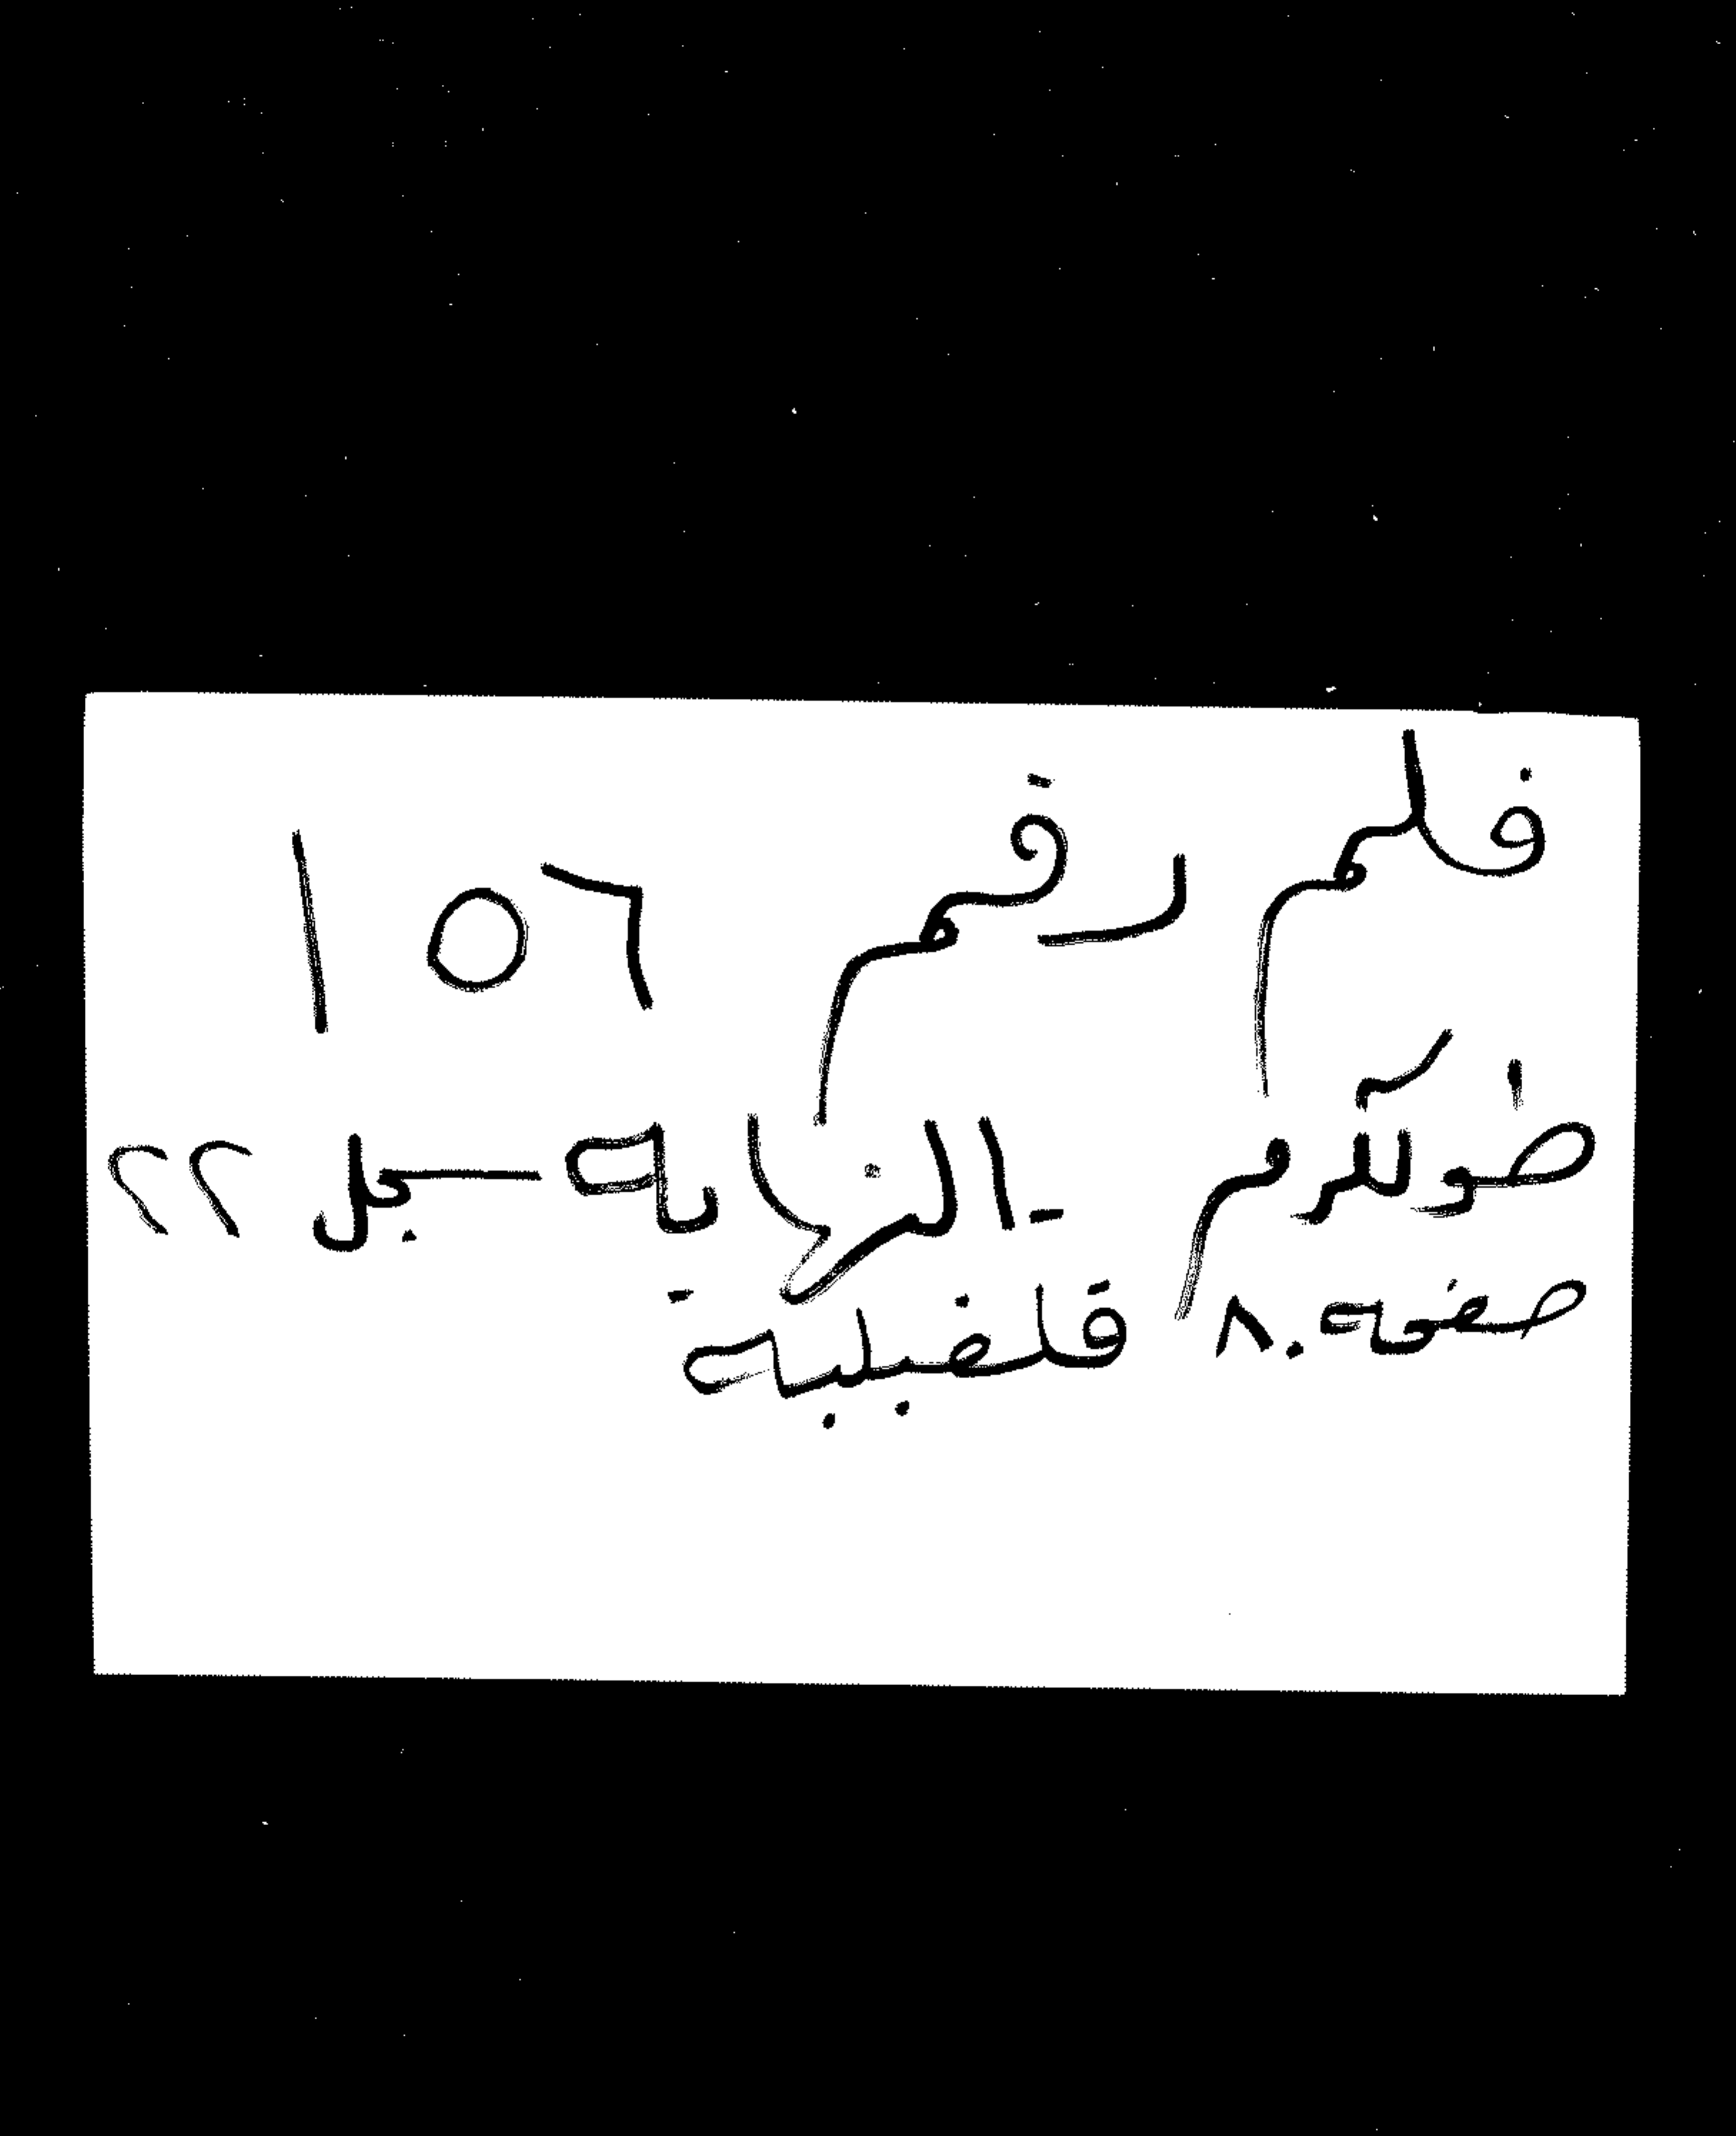 فلم رقم ١٥٦
طولكرم - النهاية سجل ٢٢
صفحة ٨٠ قلضيلية